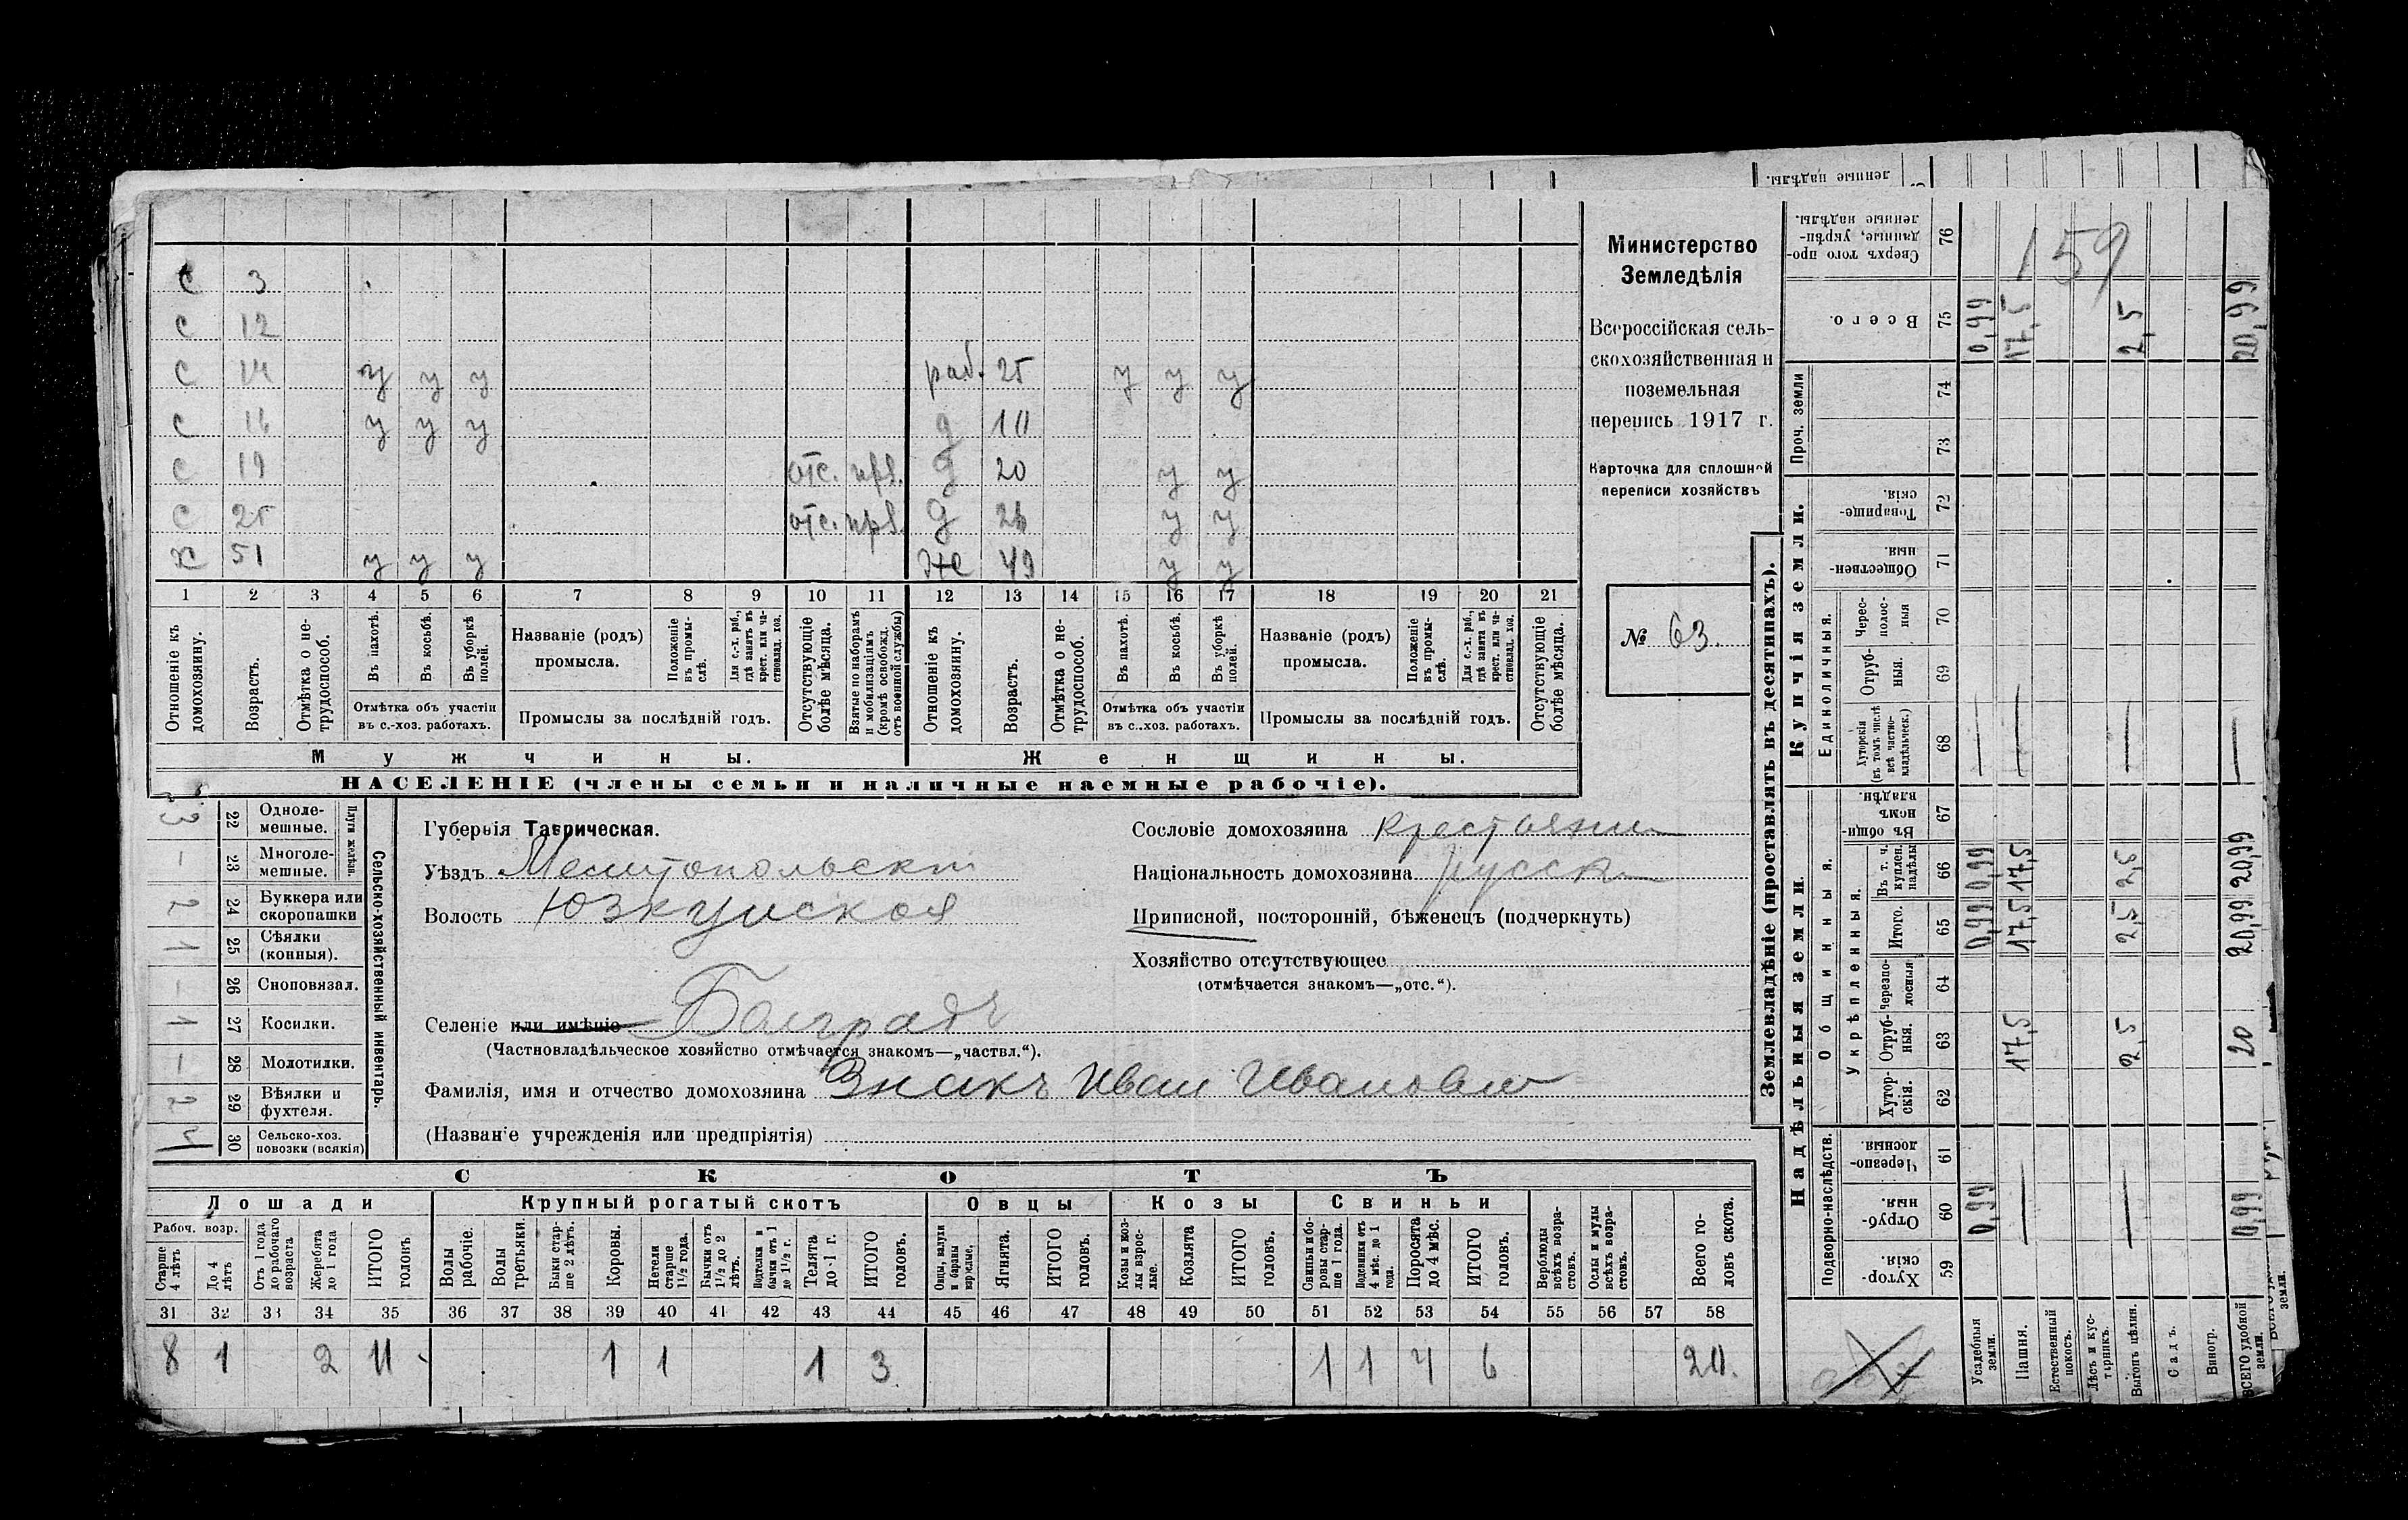 С 3
С 12
С 14 у у у раб. 25 у у у
С 16 у у у д 10
С 19 отс. д 20 у у
С 25 отс. д у у
х 51 у у у Же 49 у у
1 2 3 4 5 6 7 8 9 10 11 12 13 14 15 16 17 18 19 20 21
Отношеніе къ домохозяину.
Возрастъ.
Отмѣтка о не-
трудоспособ.
Въ пахотѣ.
Въ косьбѣ.
Въ уборкѣ
полей.
Отмѣтка объ участіи
въ с.-хоз. работахъ.
Названіе (родъ)
промысла.
Положеніе
въ промы-
слѣ.
Для с.-х. раб.,
гдѣ занятъ въ
крест. или ча-
стновлад. хоз.
Промыслы за послѣдній годъ.
Отсутствующіе
болѣе мѣсяца.
Взятые по наборамъ
и мобилизаціямъ
(кромѣ освобожд.
отъ военной службы)
Отношеніе къ
домохозяину.
Возрастъ.
Отмѣтка о не-
трудоспособ.
Въ пахотѣ.
Въ косьбѣ.
Въ уборкѣ
полей.
Отмѣтка объ участіи
въ с.-хоз. работахъ.
Названіе (родъ)
промысла.
Положеніе
въ промы-
слѣ.
Для с.-х. раб.,
гдѣ занята въ
крест. или ча-
стновлад. хоз.
Промыслы за послѣдній годъ.
Отсутствующіе
болѣе мѣсяца.
Мужчины.
Женщины.
НАСЕЛЕНІЕ (члены семьи и наличные наемные рабочіе).
Министерство
Земледѣлія
Всероссійская сель-
скохозяйственная и
поземельная
перепись 1917 г.
Карточка для сплошной
переписи хозяйствъ
№ 63.
Сельско-хозяйственный инвентарь.
Плуги желѣзн.
3 22 Одноле-
мешные.
— 23 Многоле-
мешные.
2 24 Буккера или
скоропашки
1 25 Сѣялки
(конныя).
— 26 Сноповязал.
1 27 Косилки.
— 28 Молотилки.
2 29 Вѣялки и
фухтеля.
30 Сельско-хоз.
повозки (всякія)
Губернія Таврическая.
Уѣздъ Мелитопольскій
Волость Юзкуйская
Селеніе или имѣніе Болградъ
(Частновладѣльческое хозяйство отмѣчается знакомъ—„частвл.“).
Фамилія, имя и отчество домохозяина Знакъ Иван Иванович
(Названіе учрежденія или предпріятія)
Сословіе домохозяина крестьянин
Національность домохозяина русск
Приписной, посторонній, бѣженецъ (подчеркнуть)
Хозяйство отсутствующее
(отмѣчается знакомъ—„отс.“).
СКОТЪ
Лошади
Крупный рогатый скотъ
Овцы
Козы
Свиньи
Рабоч. возр.
Старше
4 лѣтъ
До 4
лѣтъ
Отъ 1 года
до рабочаго
возраста
Жеребята
до 1 года
ИТОГО
головъ
Волы
рабочіе.
Волы
третьяки.
Быки стар-
ше 2 лѣтъ.
Коровы.
Нетели
старше
1½ года.
Бычки отъ
1½ до 2
лѣтъ.
Подтелки и
бычки отъ 1
до 1½ г.
Телята
до 1 г.
ИТОГО
головъ.
Овцы, валухи
и бараны
взрослые.
Ягнята.
ИТОГО
головъ.
Козы и коз-
лы взрос-
лые.
Козлята
ИТОГО
головъ.
Свиньи и бо-
ровы стар-
ше 1 года.
Подсвинки отъ
4 мѣс. до 1
года.
Поросята
до 4 мѣс.
ИТОГО
головъ.
Верблюды
всѣхъ возра-
стовъ.
Ослы и мулы
всѣхъ возра-
стовъ.
Всего го-
ловъ скота.
31 32 33 34 35 36 37 38 39 40 41 42 43 44 45 46 47 48 49 50 51 52 53 54 55 56 57 58
8 1 2 11 1 1 1 3 1 1 4 6 20.
Землевладѣніе (проставлять въ десятинахъ).
Купчія земли.
Надѣльныя земли
Единоличныя.
Общинныя.
Укрѣпленныя.
Подворно-наслѣдств.
Проч. земли
Сверхъ того про-
данные, укрѣп-
ленные надѣлы.
76
159
Всего.
75 0,99 17,5 2,5 20,99
74
73
Товарище-
скія.
72
Обществен-
ныя.
71
Черес-
полос-
ныя
70
Отруб-
ныя.
69
Хуторскія
(въ томъ числѣ
всѣ частно-
владѣльческ.)
68 — — — —
Въ общин-
номъ
владѣн.
67
Въ т. ч.
куплен.
надѣлы
66 0,99 17,5 2,5 20,99
Итого.
65 0,99 17,5 2,5 20,99
Черезпо-
лосныя
64
Отруб-
ныя.
63 17,5 2,5 20
Хутор-
скія.
62
Черезпо-
лосныя
61
Отруб-
ныя.
60 0,99 — — 0,99
Хутор-
скія.
59
Усадебныя
земли.
Пашня.
Естественный
покосъ.
Лѣсъ и кус-
тарникъ.
Выгонъ цѣлин.
Садъ.
Виногр.
ВСЕГО удобной
земли.
ленные надѣлы.